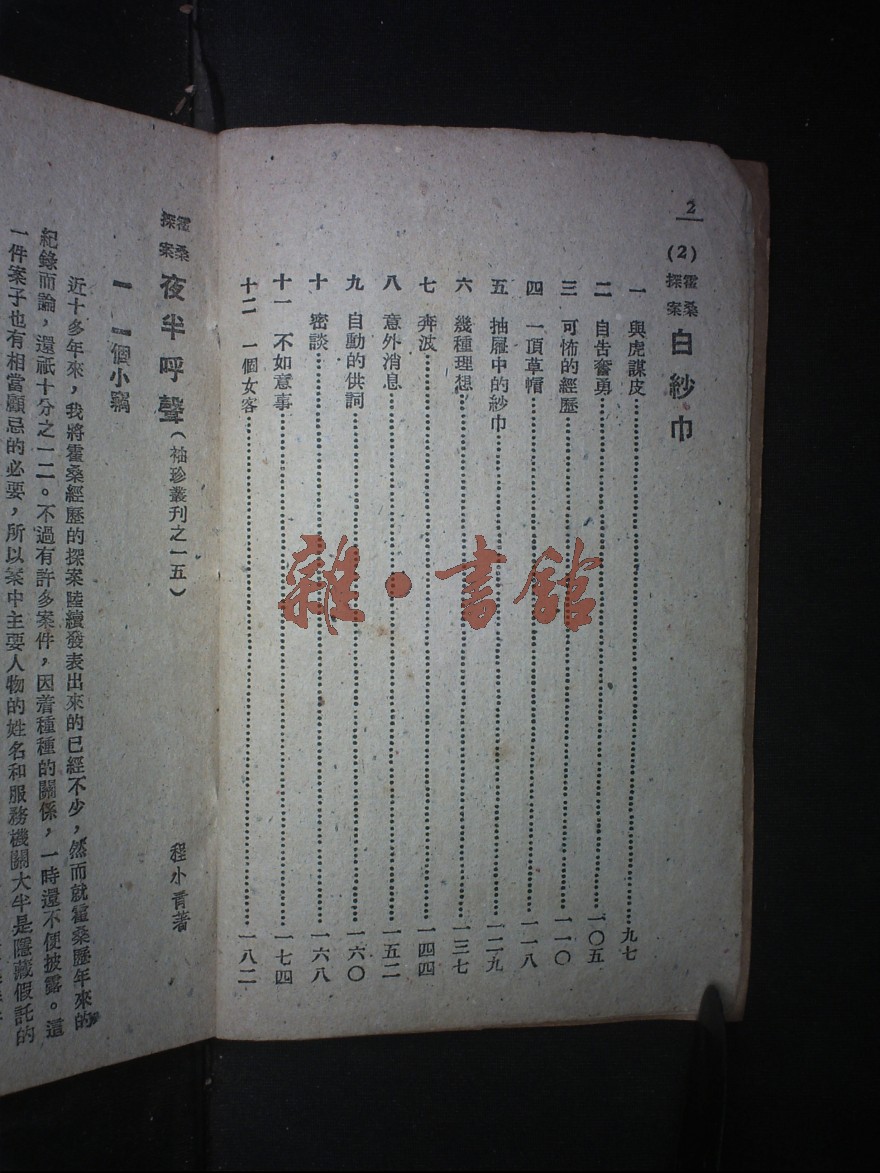 2
(2) 霍桑探案 白紗巾
一 與虎謀皮 九七
二 自告奮勇 一〇五
三 可怖的經歷 一一〇
四 一頂草帽 一一八
五 抽屜中的紗巾 一二九
六 幾種理想 一三七
七 奔波 一四四
八 意外消息 一五二
九 自動的供詞 一六〇
十 密談 一六八
十一 不如意事 一七四
十二 一個女客 一八二
霍桑探案 夜半呼聲(袖珍叢刊之一五) 程小青著
一 一個小竊
近十多年來,我將霍桑經歷的探案陸續發表出來的已經不少,然而就霍桑歷年來的
紀錄而論,還祇十分之一二。不過有許多案件,因着種種的關係,一時還不便披露。這
一件案子也有相當顧忌的必要,所以案中主要人物的姓名和服務機關大半是隱藏假託的
雜·書館